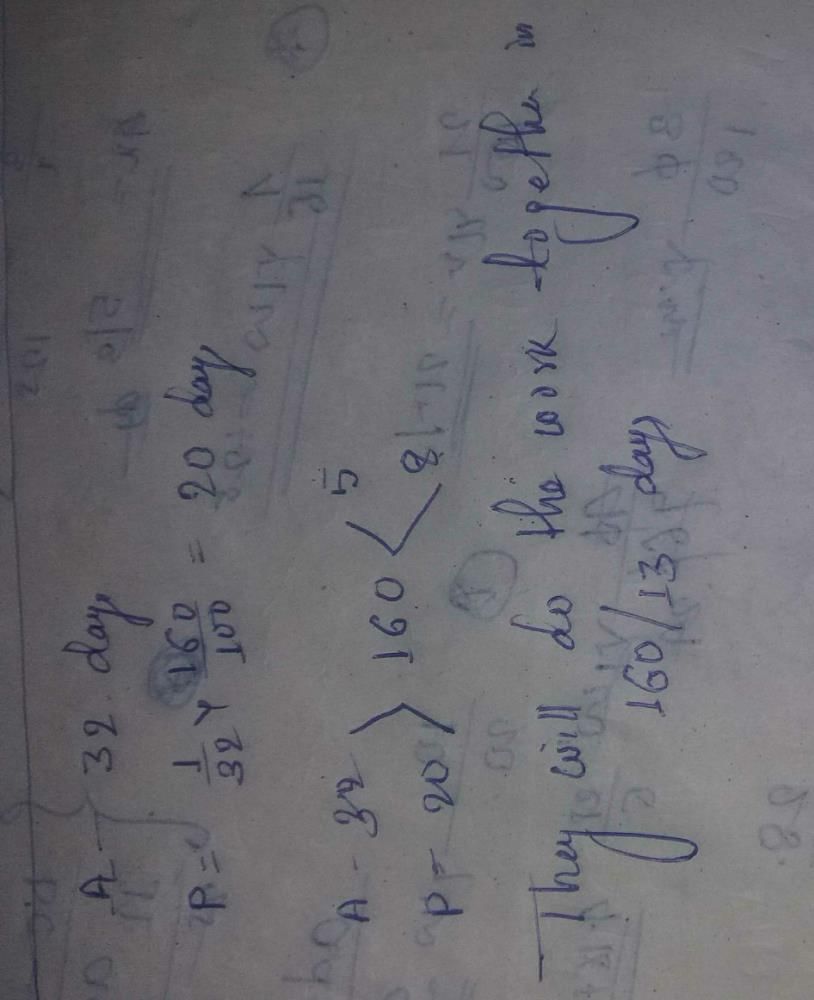 A - 32 days
P = 1/32 × 160/100 = 20 days
A - 32 > 160 < 5
P - 20 8
They will do the work together in
160/13 days